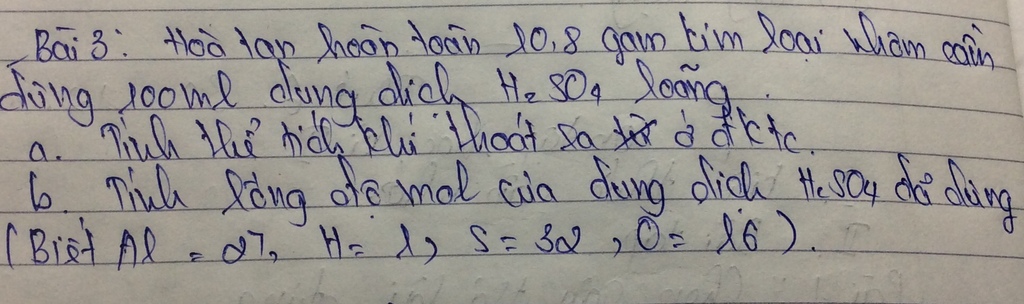 Bài 3: Hoà tan hoàn toàn 10,8 gam kim loại nhôm cần
dùng 100ml dung dịch H₂SO₄ loãng.
a. Tính thể tích khí thoát ra ở đktc.
b. Tính nồng độ mol của dung dịch H₂SO₄ đã dùng
(Biết Al = 27, H = 1, S = 32, O = 16).